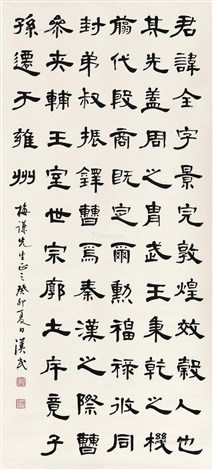 君諱全字景完敦煌效穀人也
其先蓋周之胄武王秉乾之機
翦伐殷商既定爾勳福祿攸同
封弟叔振鐸曹焉秦漢之際曹
參夾輔王室世宗廓土斥竟子
孫遷于雍州
梅謙先生正之癸卯夏日漢